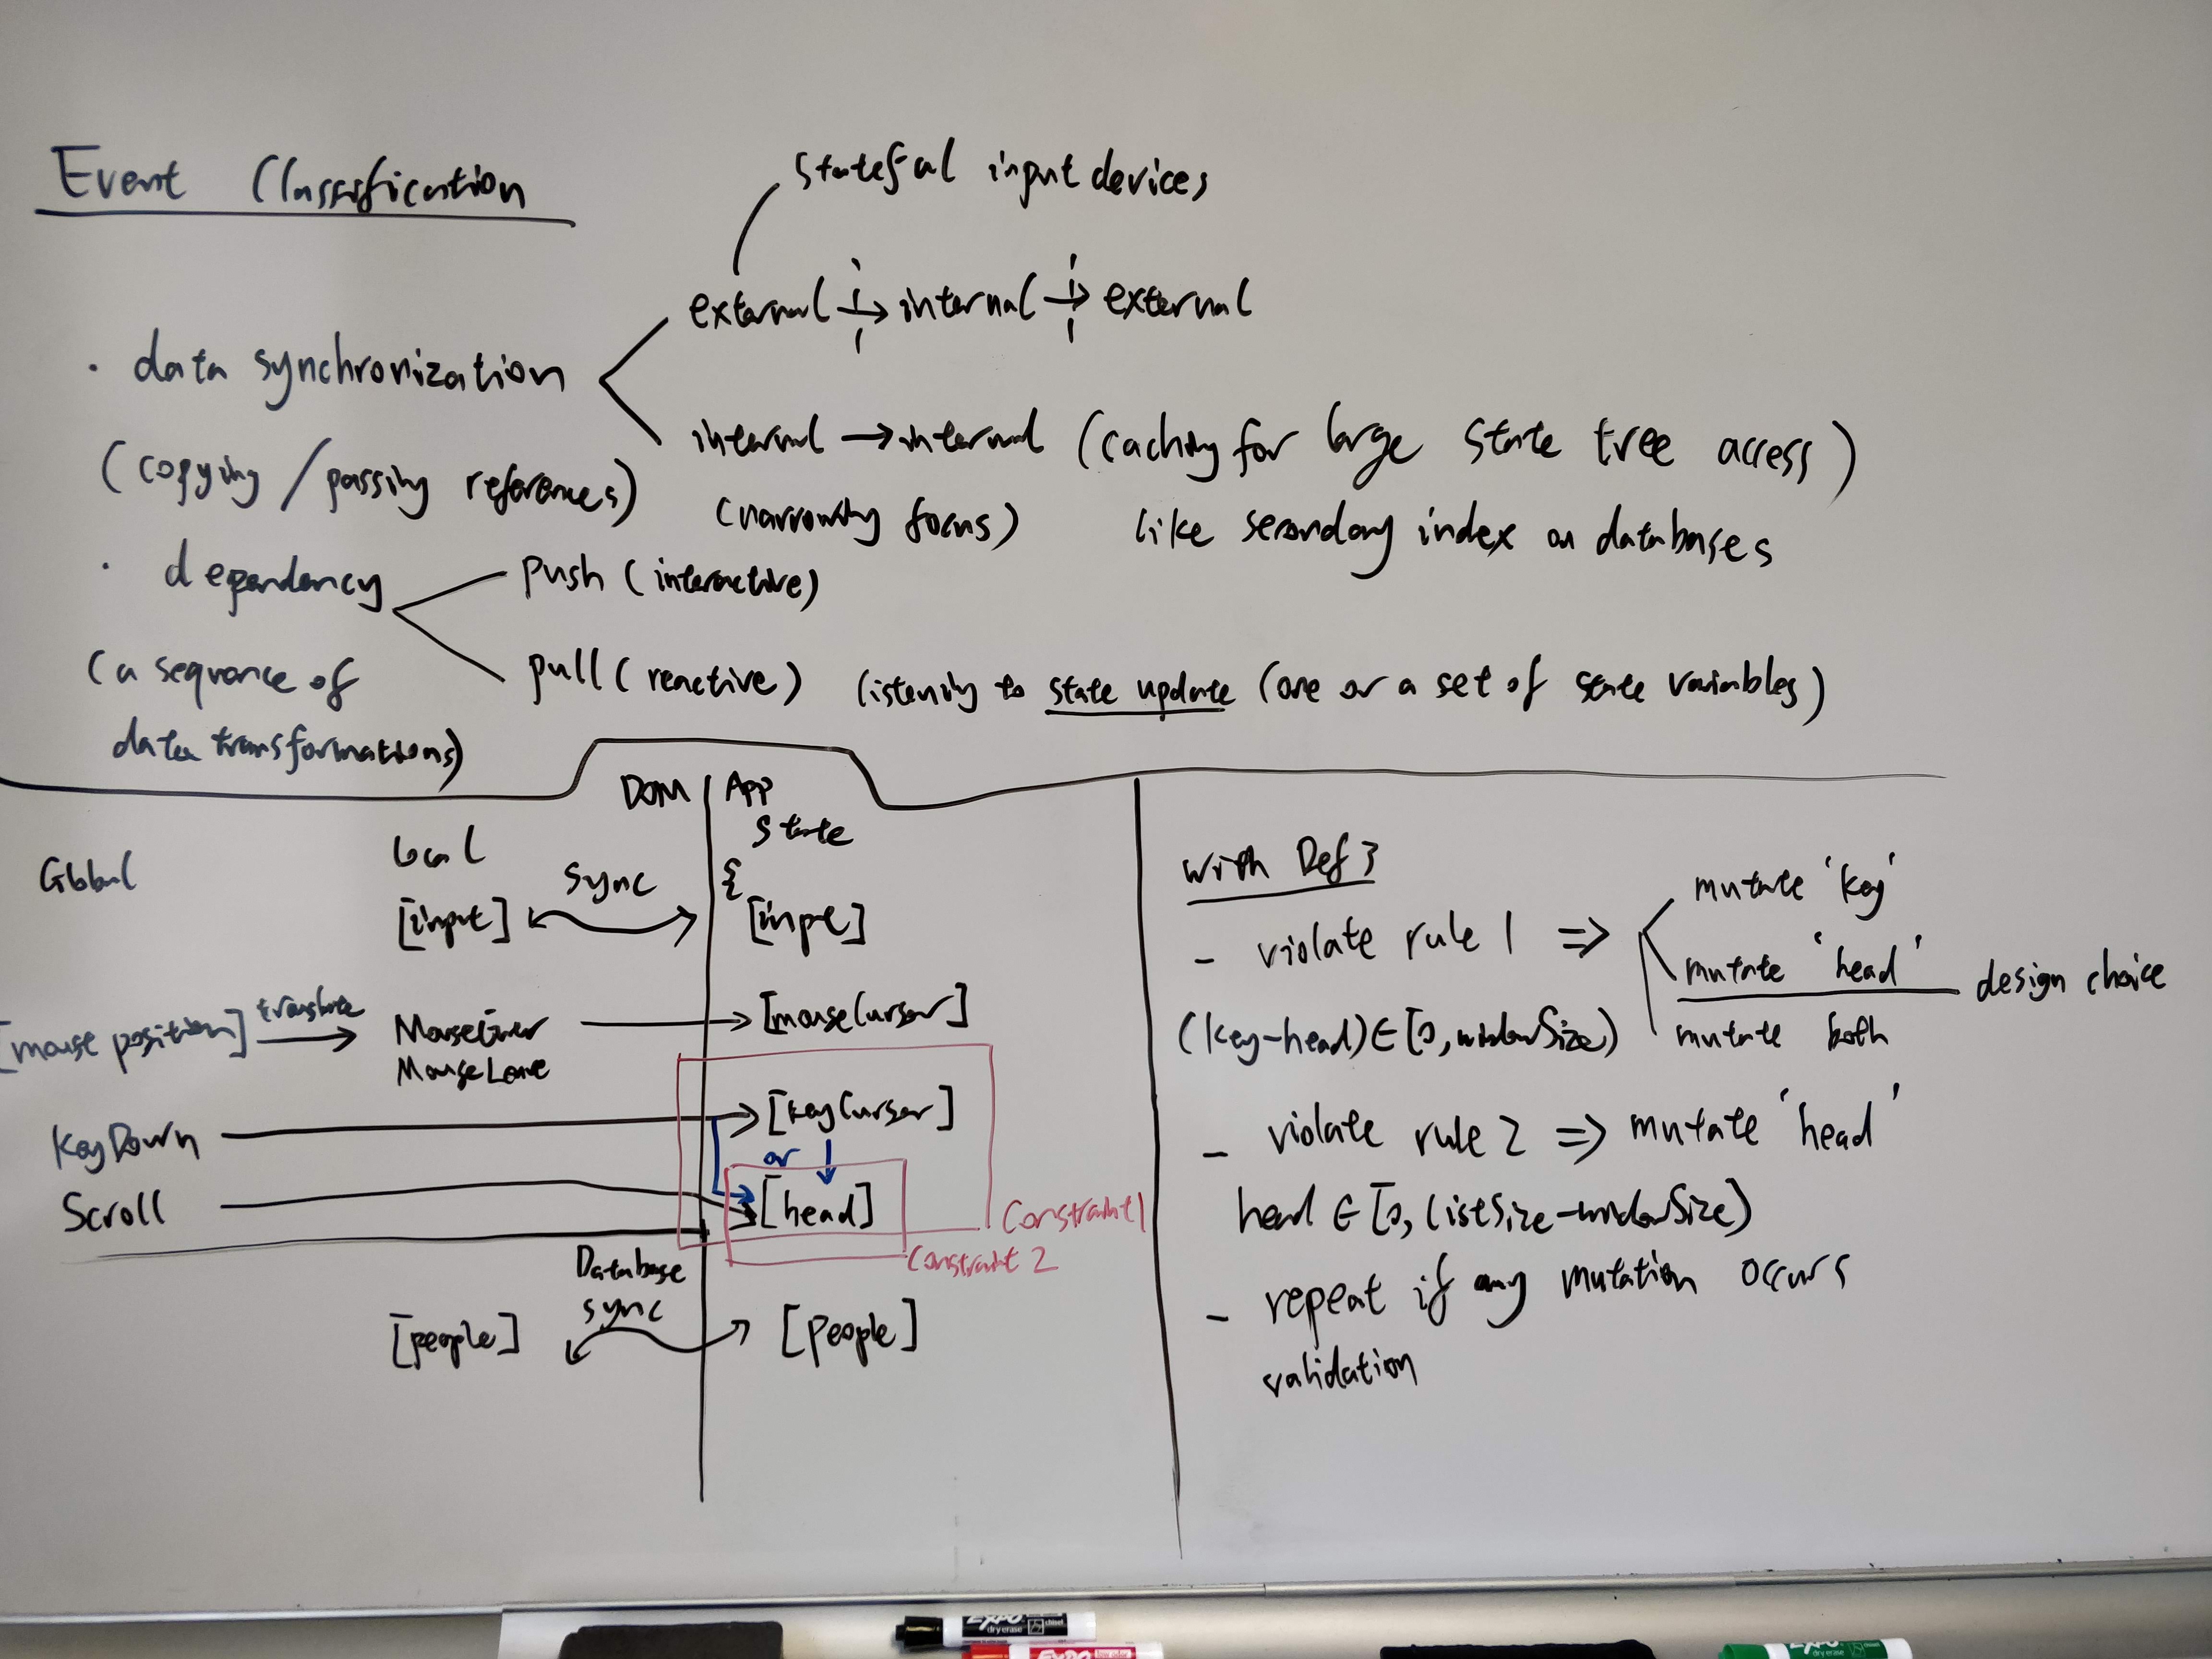 Event Classification
stateful input devices
external → internal → external
· data synchronization
(copying / passing references)
internal → internal (caching for large state tree access)
(narrowing focus) like secondary index on databases
· dependency
push (interactive)
(a sequence of
data transformations)
pull (reactive) listening to state update (one or a set of state variables)
DOM | App
State
{
Global
Local
[input]
sync
[inpt]
[mouse position]
translate
MouseEnter
MouseLeave
[mouseCursor]
KeyDown
[keyCursor]
or
Scroll
[head]
Constraint 1
Constraint 2
Database
sync
[people]
[people]
with Def 3
- violate rule 1 =>
mutate 'key'
mutate 'head'
design choice
mutate both
(key-head) ∈ [0, windowSize)
- violate rule 2 => mutate 'head'
head ∈ [0, listSize-windowSize)
- repeat if any mutation occurs
validation
EXPO
dry erase
chisel
EXPO
EXPO
dry erase